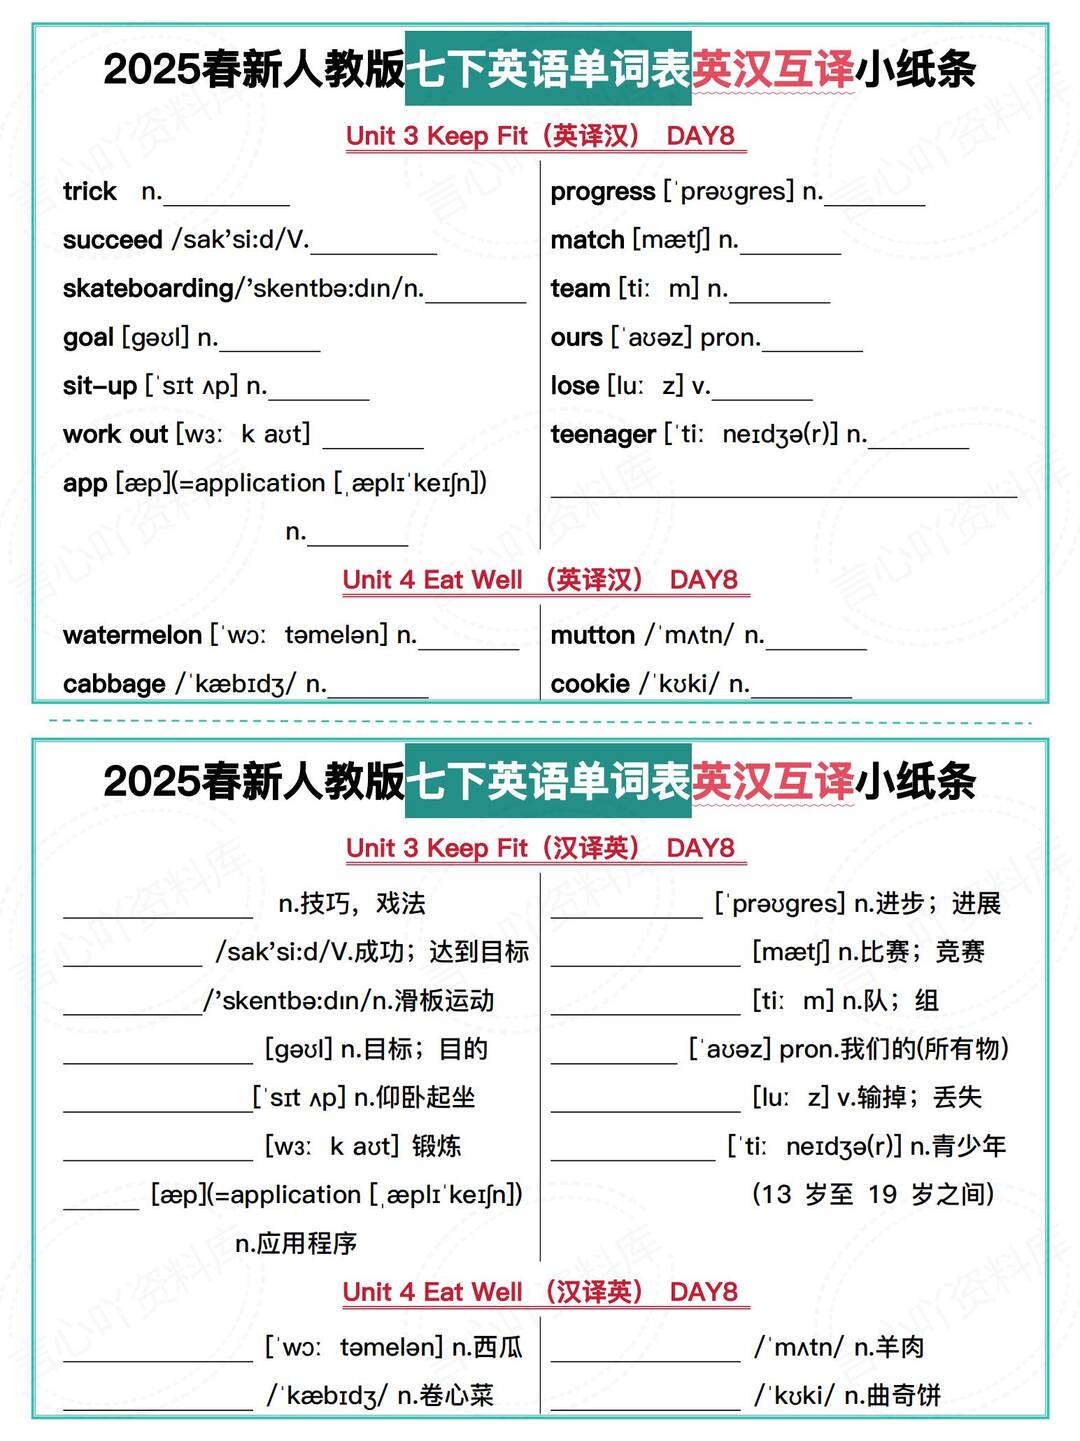 2025春新人教版七下英语单词表英汉互译小纸条
Unit 3 Keep Fit（英译汉） DAY8
trick n.__________
succeed /sak’si:d/V.__________
skateboarding/’skentbə:dın/n.________
goal [gəʊl] n.________
sit-up [ˈsɪt ʌp] n.________
work out [wɜː k aʊt] ________
app [æp](=application [ˌæplɪˈkeɪʃn])
n.________
progress [ˈprəʊgres] n.________
match [mætʃ] n.________
team [tiː m] n.________
ours [ˈaʊəz] pron.________
lose [luː z] v.________
teenager [ˈtiː neɪdʒə(r)] n.________
Unit 4 Eat Well （英译汉） DAY8
watermelon [ˈwɔː təmelən] n.________
cabbage /ˈkæbɪdʒ/ n.________
mutton /ˈmʌtn/ n.________
cookie /ˈkʊki/ n.________
2025春新人教版七下英语单词表英汉互译小纸条
Unit 3 Keep Fit（汉译英） DAY8
_______________ n.技巧，戏法
___________ /sak’si:d/V.成功；达到目标
___________/’skentbə:dın/n.滑板运动
_______________ [gəʊl] n.目标；目的
_______________[ˈsɪt ʌp] n.仰卧起坐
_______________ [wɜː k aʊt] 锻炼
______ [æp](=application [ˌæplɪˈkeɪʃn])
n.应用程序
____________ [ˈprəʊgres] n.进步；进展
_______________ [mætʃ] n.比赛；竞赛
_______________ [tiː m] n.队；组
__________ [ˈaʊəz] pron.我们的(所有物)
_______________ [luː z] v.输掉；丢失
_____________ [ˈtiː neɪdʒə(r)] n.青少年
(13 岁至 19 岁之间)
Unit 4 Eat Well （汉译英） DAY8
_______________ [ˈwɔː təmelən] n.西瓜
_______________ /ˈkæbɪdʒ/ n.卷心菜
_______________ /ˈmʌtn/ n.羊肉
_______________ /ˈkʊki/ n.曲奇饼
言心吖资料库